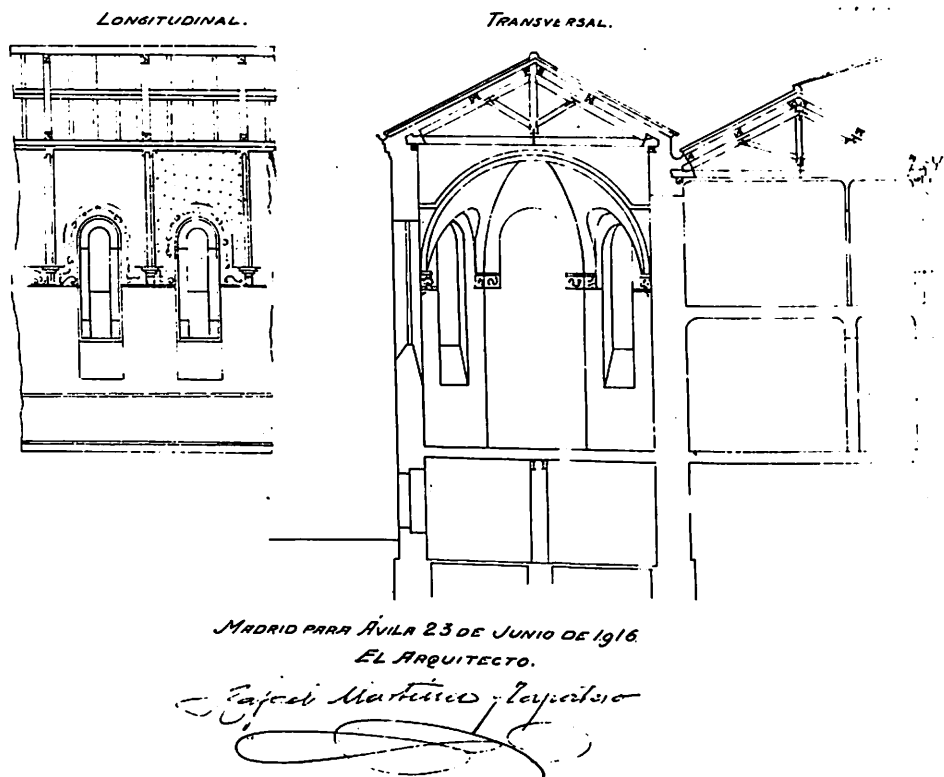 LONGITUDINAL.
TRANSVERSAL.
MADRID PARA ÁVILA 23 DE JUNIO DE 1916.
EL ARQUITECTO.
Rafael Martínez Zapatero